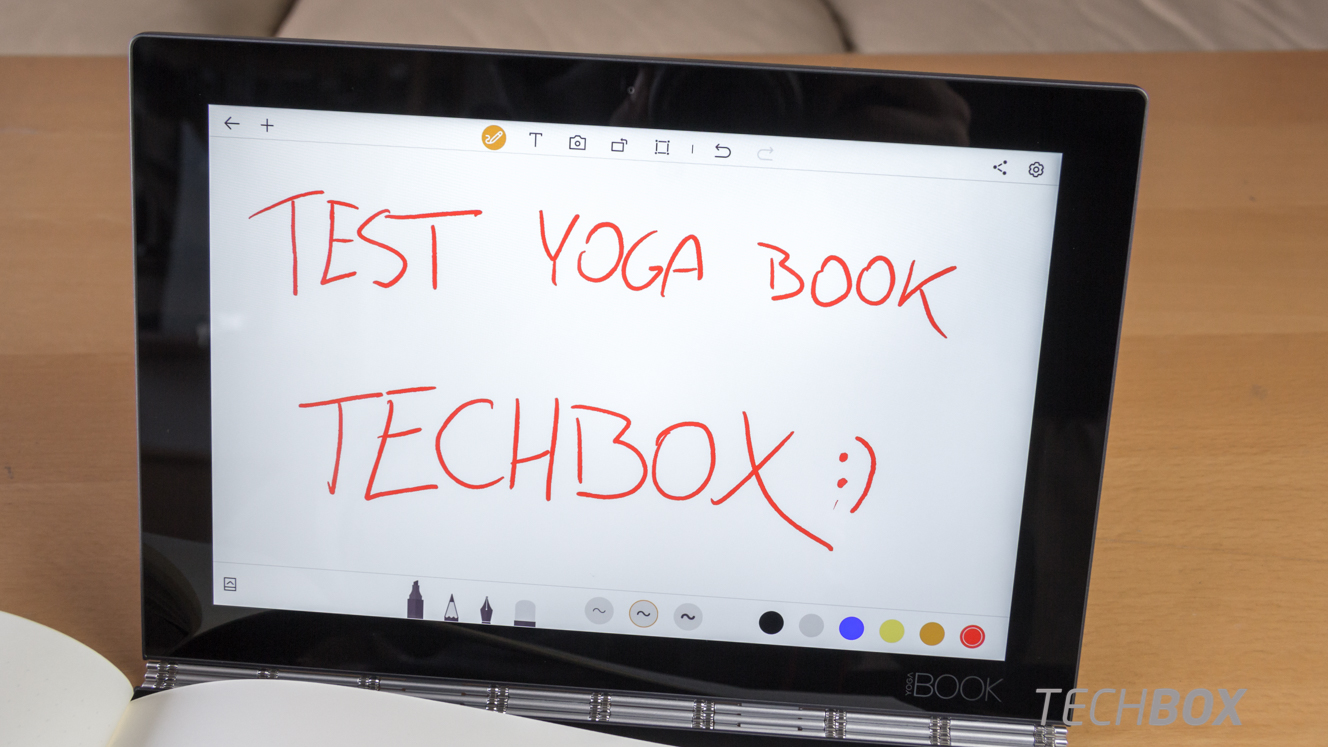 T
TEST YOGA BOOK
TECHBOX :)
YOGA BOOK
TECHBOX